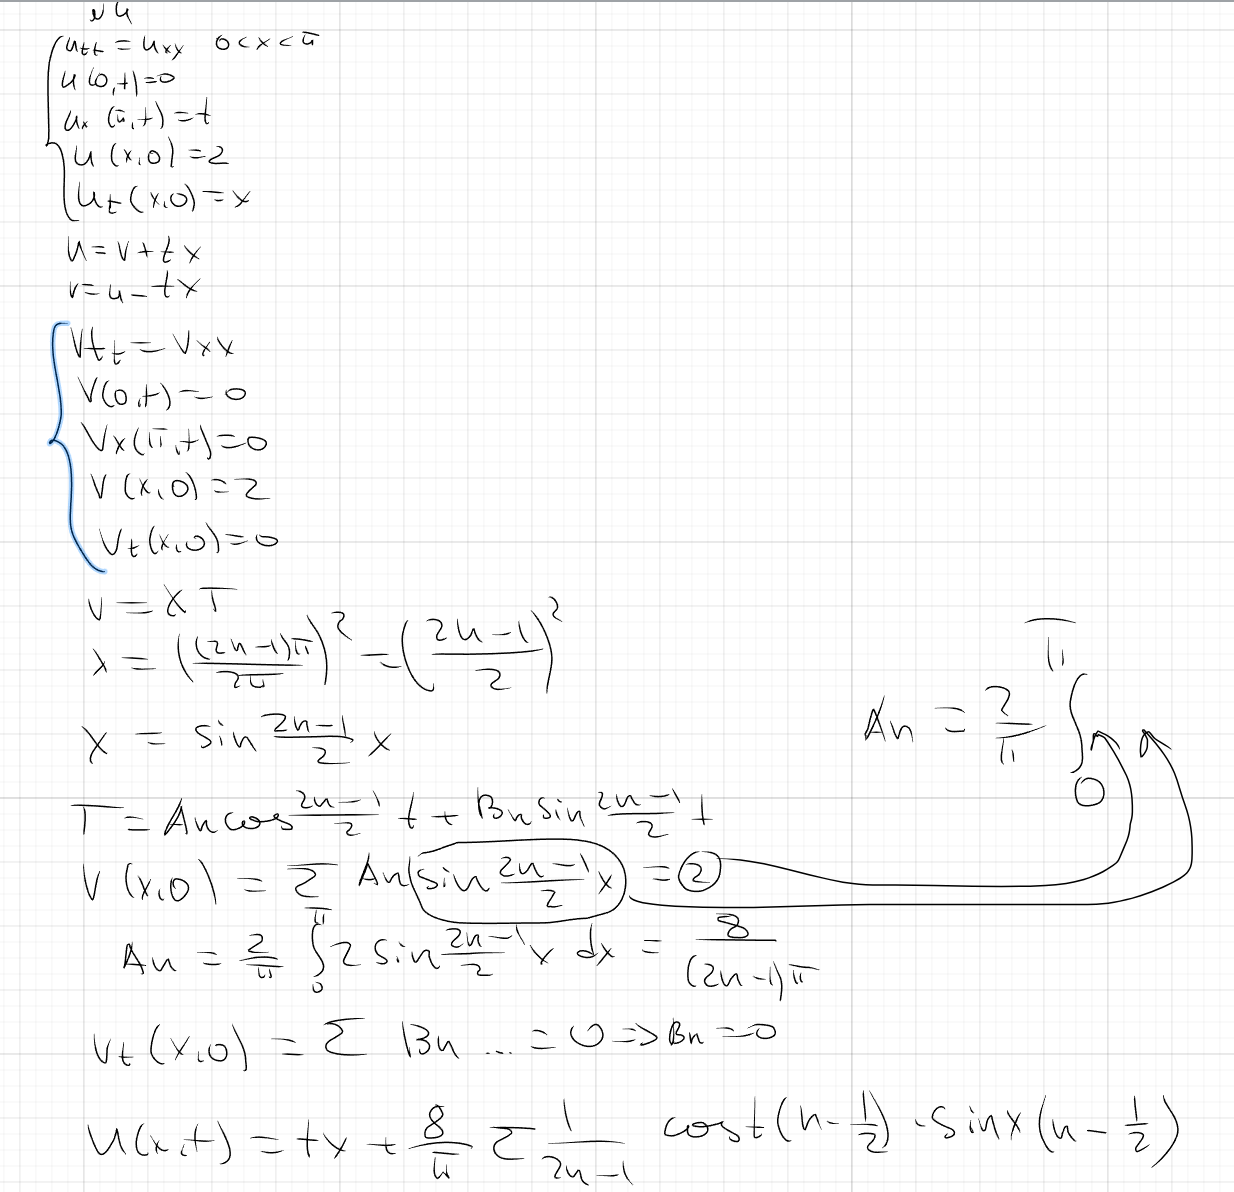 №4
u_tt = u_xy 0<x<π
u(0,t)=0
u_x (π,t)=t
u(x,0)=2
u_t(x,0)=x
u=v+tx
v=u-tx
v_tt=v_xx
v(0,t)=0
v_x(π,t)=0
v(x,0)=2
v_t(x,0)=0
v=XT
λ=((2n-1)π/2π)²=((2n-1)/2)²
X = sin (2n-1)/2 x
An = 2/π ∫₀^π
T=An cos (2n-1)/2 t + Bn sin (2n-1)/2 t
v(x,0) = Σ An(sin (2n-1)/2 x) = 2
An = 2/π ∫₀^π 2 sin (2n-1)/2 x dx = 8/((2n-1)π)
v_t(x,0) = Σ Bn ... = 0 => Bn=0
u(x,t) = tx + 8/π Σ 1/(2n-1) cos t(n-1/2) · sin x(n-1/2)